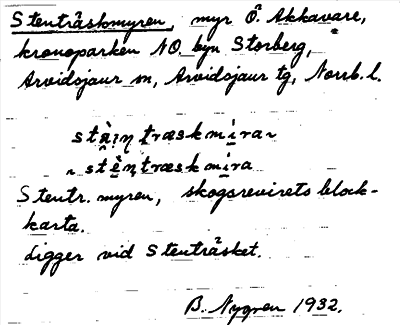 Stenträskmyren, myr Ö. Akkavare,
kronoparken NO. byn Storberg,
Arvidsjaur sn, Arvidsjaur tg, Norrb. l.
stæ̀i̯ṇtræskmi̇ra~
~stèṇtræskmi̇ra
Stentr. myren, skogsrevirets block-
karta.
Ligger vid Stenträsket.
B. Nygren 1932.